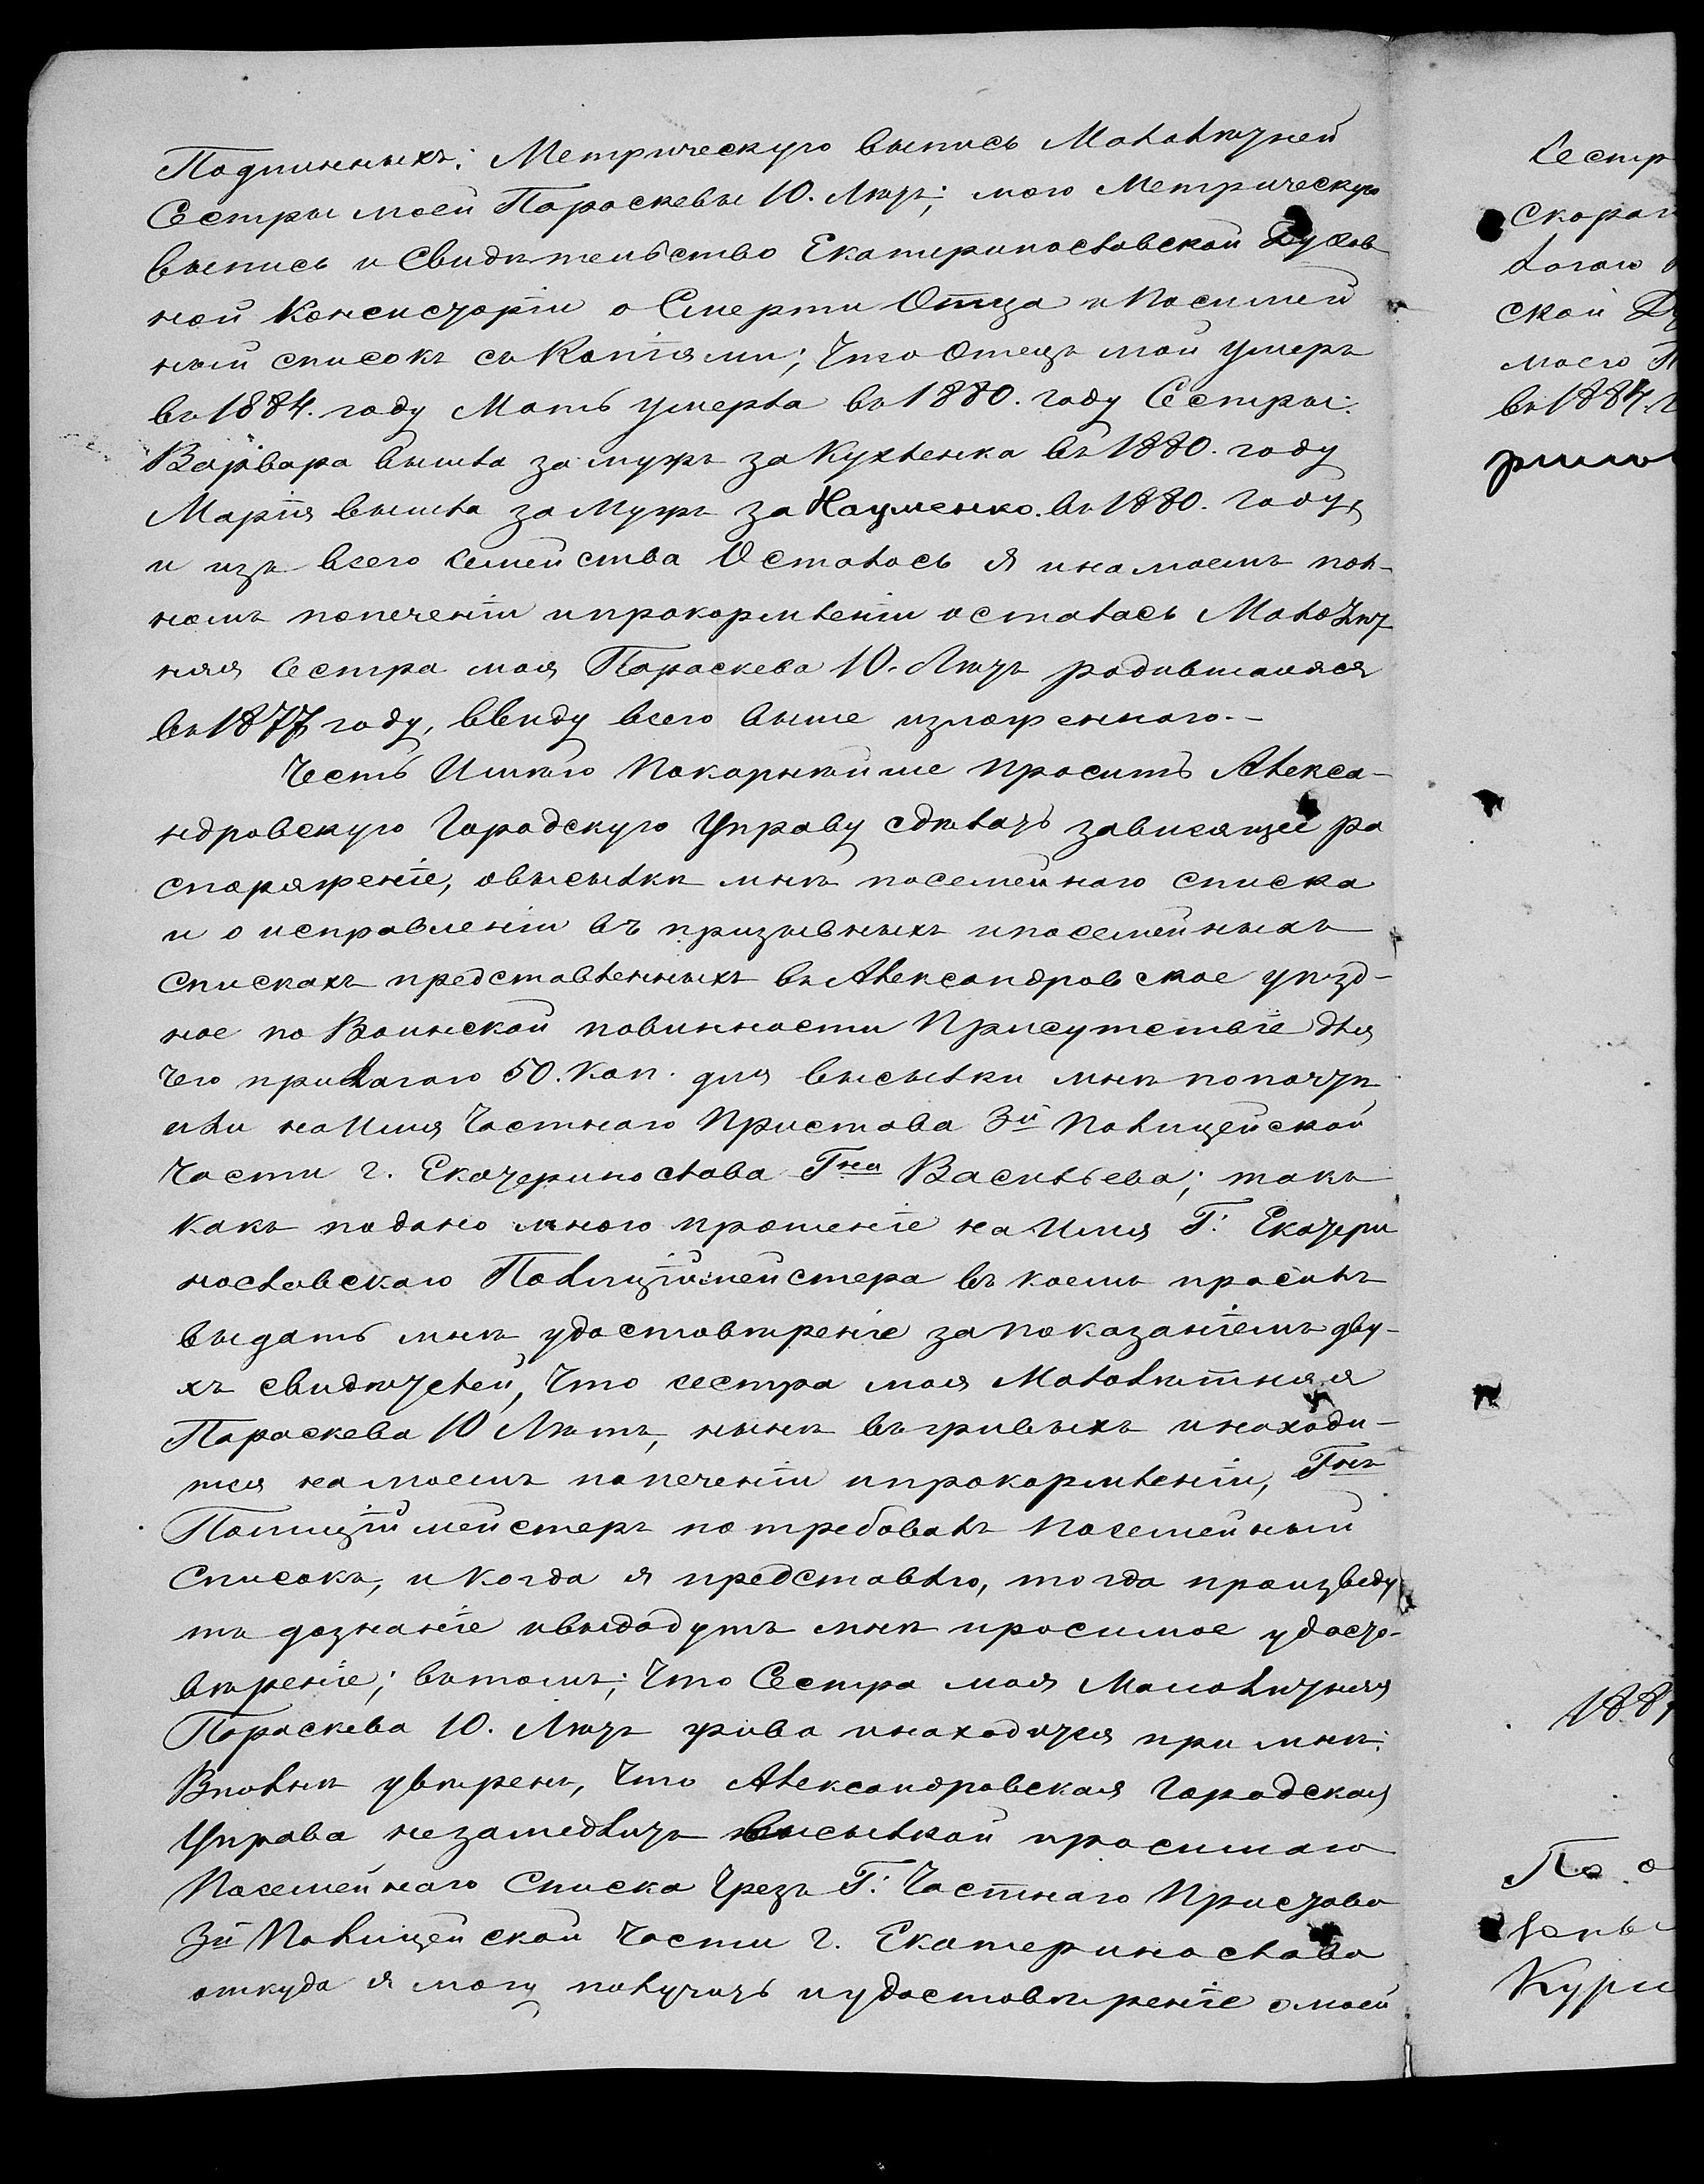 Подлинныхъ: Метрическую выпись Малолѣтней
Сестры моей Параскевы 10. Лѣтъ; мою Метрическую
выпись и Свидѣтельство Екатеринославской Духов
ной Консисторіи о Смерти Отца и Посемей
ный списокъ съ Копіями; Что Отецъ мой умеръ
въ 1884. году Мать умерла въ 1880. году Сестры:
Варвара вышла замужъ за Кухленка въ 1880. году
Марія вышла за Мужъ за Науменко. въ 1880. году,
и изъ всего семейства Осталось я и на моемъ пол-
номъ попеченіи и прокормленіи осталась Малолѣт
няя Сестра моя Параскева 10. Лѣтъ родившаяся
въ 1877 году, ввиду всего выше изложеннаго.-
Честь Имѣю Покорнѣйше Просить Алекса-
ндровскую Городскую Управу сдѣлать зависящее ра
споряженіе, о высылкѣ мнѣ посемейнаго списка
и о исправленіи въ призывныхъ и посемейныхъ
спискахъ представленныхъ въ Александровское уѣзд-
ное по Воинской повинности Присутствіе для
чего прилагаю 50. Коп. для высылки мнѣ по почтѣ
или на Имя Частнаго Пристава 3й Полицейской
Части г. Екатеринослава Гна Васильева; такъ
какъ подано мною прошеніе на Имя Г. Екатери
нославскаго Полиціймейстера въ коемъ просилъ
выдать мнѣ удостовѣреніе за показаніемъ дву-
хъ свидѣтелей, Что сестра моя Малолѣтняя
Параскева 10 Лѣтъ, нынѣ въ живыхъ и находи-
тся на моемъ попеченіи и прокормленіи, Гнъ
Полиціймейстеръ потребовалъ посемейный
Списокъ, и когда я представлю, тогда произведу
тъ дознаніе и выдадутъ мнѣ просимое удосто-
вѣреніе; въ томъ; Что Сестра моя Малолѣтняя
Параскева 10. Лѣтъ жива и находится при мнѣ.
Вполнѣ увѣренъ, Что Александровская Городская
Управа незамедлитъ высылкой просимаго
Посемейнаго Списка Чрезъ Г. Частнаго Пристава
3й Полицейской Части г. Екатеринослава
откуда я могу получить и удостовѣреніе о моей
Сестр
скорой
ской
моего
въ 1884.
188
По
Кури